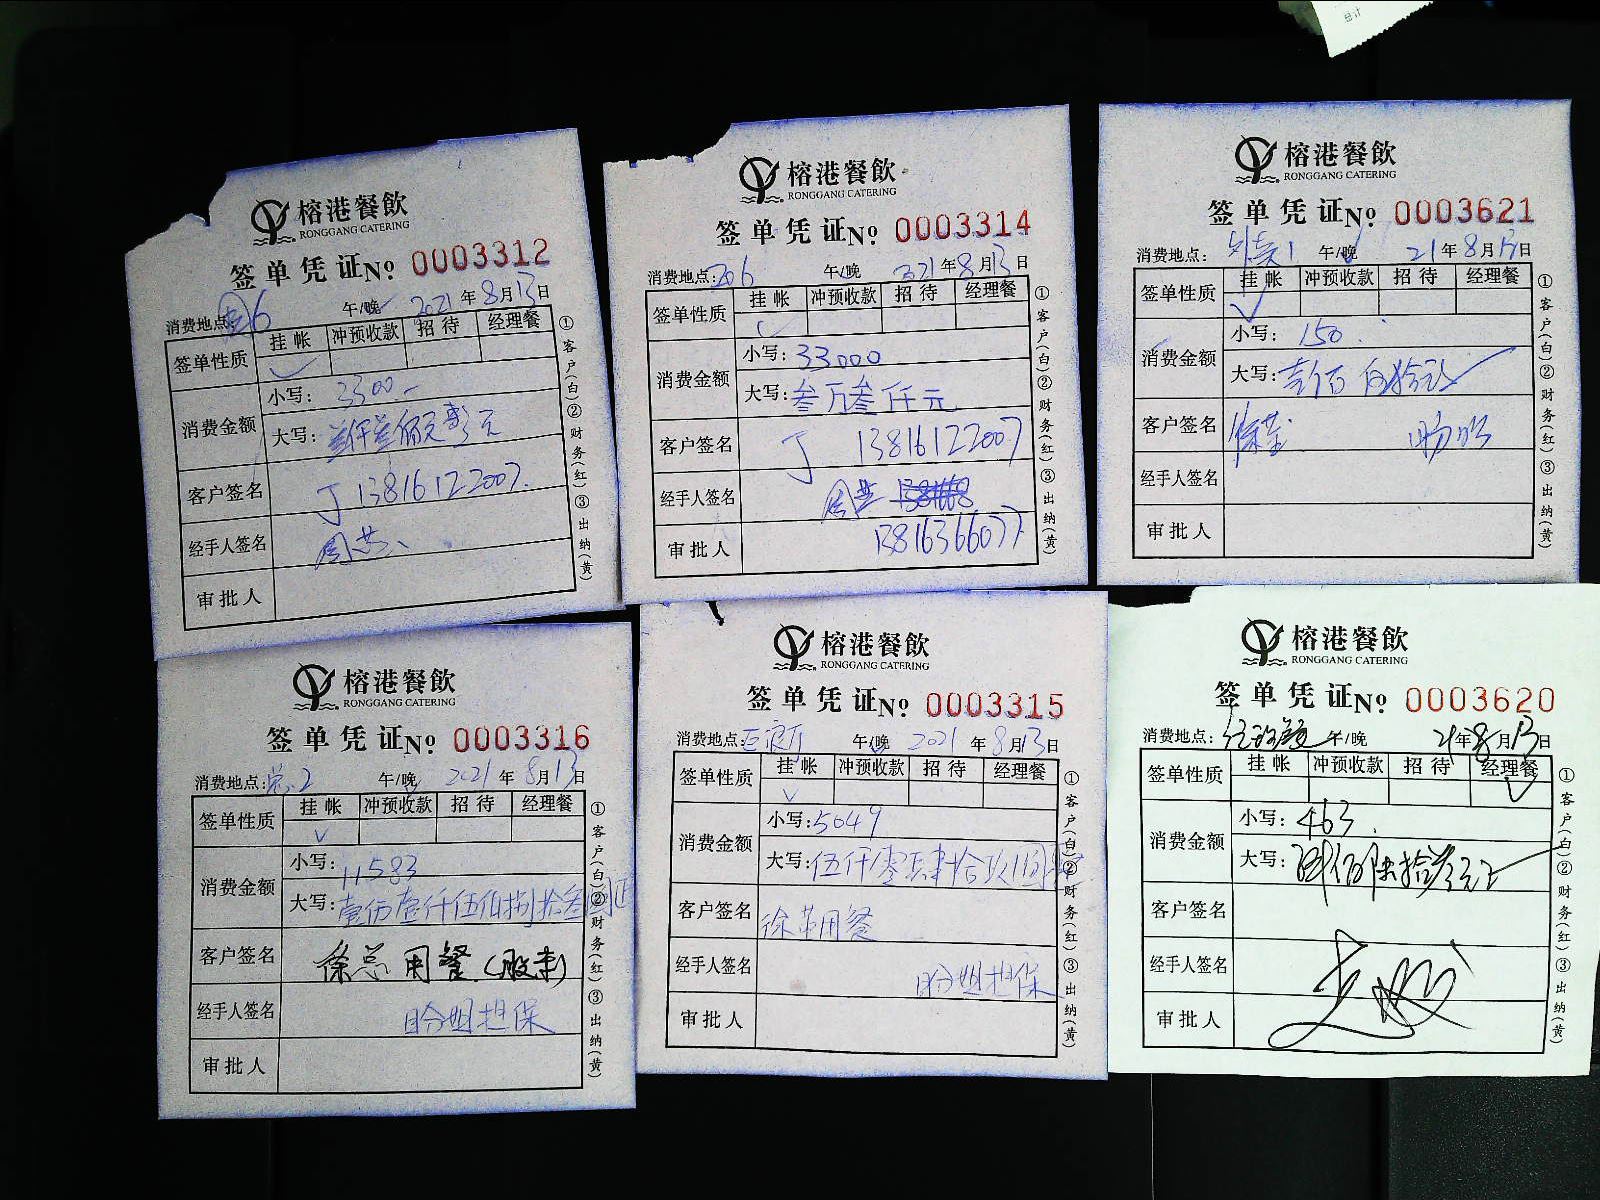 总计
榕港餐飲
RONGGANG CATERING
签单凭证No 0003312
消费地点: 6 午/晚 2021年8月13日
签单性质 挂帐 冲预收款 招待 经理餐
消费金额 小写: 3300-
大写: 叁仟叁佰元零元
客户签名 丁 13816122007.
经手人签名 周燕
审批人
①客户(白)②财务(红)③出纳(黄)
榕港餐飲
RONGGANG CATERING
签单凭证No 0003314
消费地点: 206 午/晚 2021年8月13日
签单性质 挂帐 冲预收款 招待 经理餐
消费金额 小写: 33000
大写: 叁万叁仟元
客户签名 丁 13816122007
经手人签名 周燕
审批人 13816366077
①客户(白)②财务(红)③出纳(黄)
榕港餐飲
RONGGANG CATERING
签单凭证No 0003621
消费地点: 外卖1 午/晚 21年8月13日
签单性质 挂帐 冲预收款 招待 经理餐
消费金额 小写: 150.
大写: 壹佰伍拾元正
客户签名 徐莹
经手人签名
审批人
①客户(白)②财务(红)③出纳(黄)
榕港餐飲
RONGGANG CATERING
签单凭证No 0003316
消费地点: 总2 午/晚 2021年8月13日
签单性质 挂帐 冲预收款 招待 经理餐
消费金额 小写: 11583
大写: 壹万壹仟伍佰捌拾叁圆正
客户签名 徐总用餐(股东)
经手人签名 盼姐担保
审批人
①客户(白)②财务(红)③出纳(黄)
榕港餐飲
RONGGANG CATERING
签单凭证No 0003315
消费地点: 午/晚 2021年8月13日
签单性质 挂帐 冲预收款 招待 经理餐
消费金额 小写: 5049
大写: 伍仟零肆拾玖圆
客户签名 徐莹用餐
经手人签名 盼姐担保
审批人
①客户(白)②财务(红)③出纳(黄)
榕港餐飲
RONGGANG CATERING
签单凭证No 0003620
消费地点: 午/晚 21年8月13日
签单性质 挂帐 冲预收款 招待 经理餐
消费金额 小写: 463.
大写: 肆佰陆拾叁元正
客户签名
经手人签名
审批人
①客户(白)②财务(红)③出纳(黄)